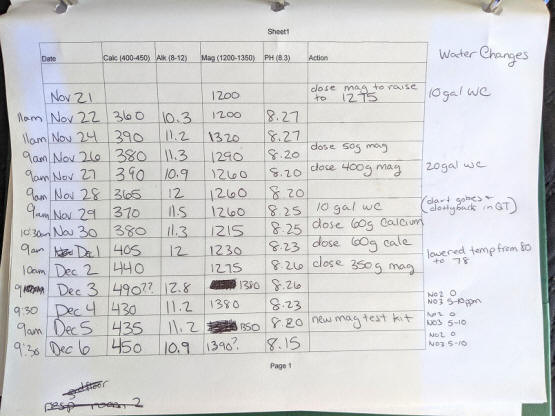 Sheet1
Date Calc (400-450) Alk (8-12) Mag (1200-1350) PH (8.3) Action Water Changes
Nov 21 1200 dose mag to raise to 1275 10 gal WC
11am Nov 22 360 10.3 1200 8.27
11am Nov 24 390 11.2 1320 8.27
9am Nov 26 380 11.3 1290 8.20 dose 50g mag
9am Nov 27 390 10.9 1260 8.20 dose 400g mag 20gal WC
9am Nov 28 365 12 1260 8.20
9am Nov 29 370 11.5 1260 8.25 10 gal WC (dart gobies & dottyback in QT)
10:30am Nov 30 380 11.3 1215 8.25 dose 60g Calcium
9am Dec 1 405 12 1230 8.23 dose 60g calc
10am Dec 2 440 1275 8.26 dose 350g mag lowered temp from 80 to 78
Dec 3 490?? 12.8 1380 8.26
9:30 Dec 4 430 11.2 1380 8.23 NO2 0 NO3 5-10ppm
9am Dec 5 435 11.2 1350 8.20 new mag test kit NO2 0 NO3 5-10
9:30 Dec 6 450 10.9 1390? 8.15 NO2 0 NO3 5-10
Page 1
room 2